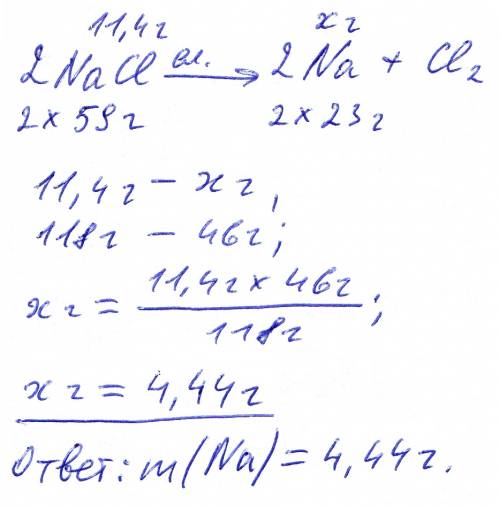 11,4г xг
2NaCl эл.→ 2Na + Cl₂
2×59г 2×23г
11,4г – xг,
118г – 46г;
xг = 11,4г×46г / 118г;
xг = 4,44г
Ответ: m(Na) = 4,44г.